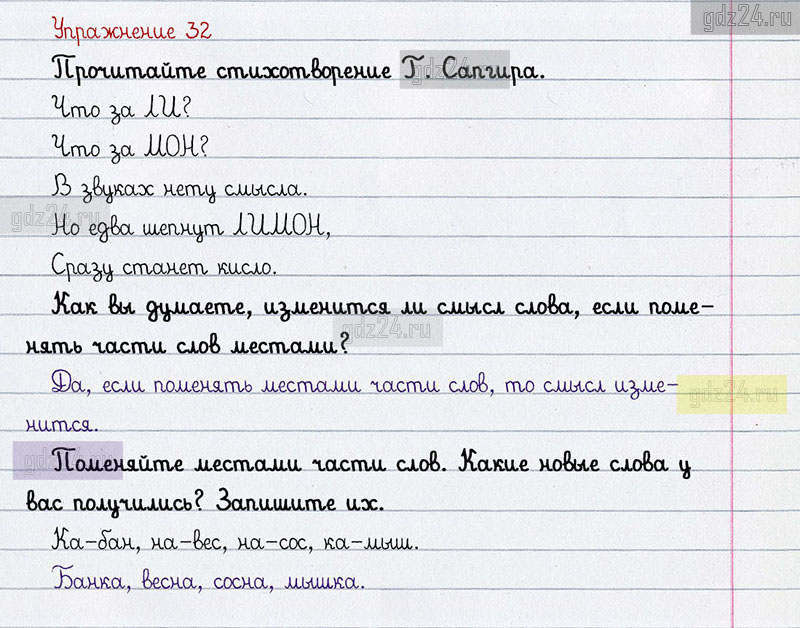 gdz24.ru
Упражнение 32
Прочитайте стихотворение Г. Сапгира.
gdz24.ru
Что за ЛИ?
Что за МОН?
В звуках нету смысла.
gdz24.ru
Но едва шепнут ЛИМОН,
Сразу станет кисло.
Как вы думаете, изменится ли смысл слова, если поме-
gdz24.ru
нять части слов местами?
Да, если поменять местами части слов, то смысл изме-
gdz24.ru
нится.
gdz24.ru
Поменяйте местами части слов. Какие новые слова у
вас получились? Запишите их.
Ка-бан, на-вес, на-сос, ка-мыш.
Банка, весна, сосна, мышка.